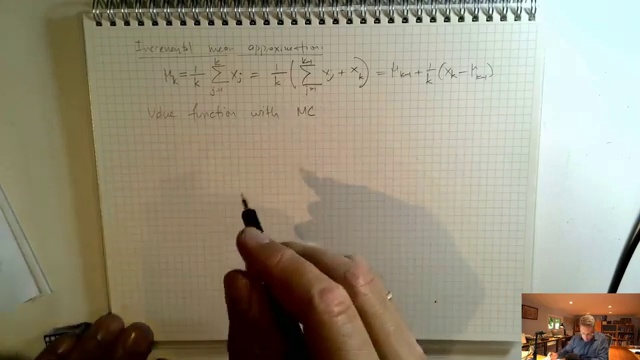 Incremental mean approximation:
μ_k = 1/k ∑_{j=1}^{k} x_j = 1/k ( ∑_{j=1}^{k-1} x_j + x_k ) = μ_{k-1} + 1/k (x_k - μ_{k-1})
value function with MC